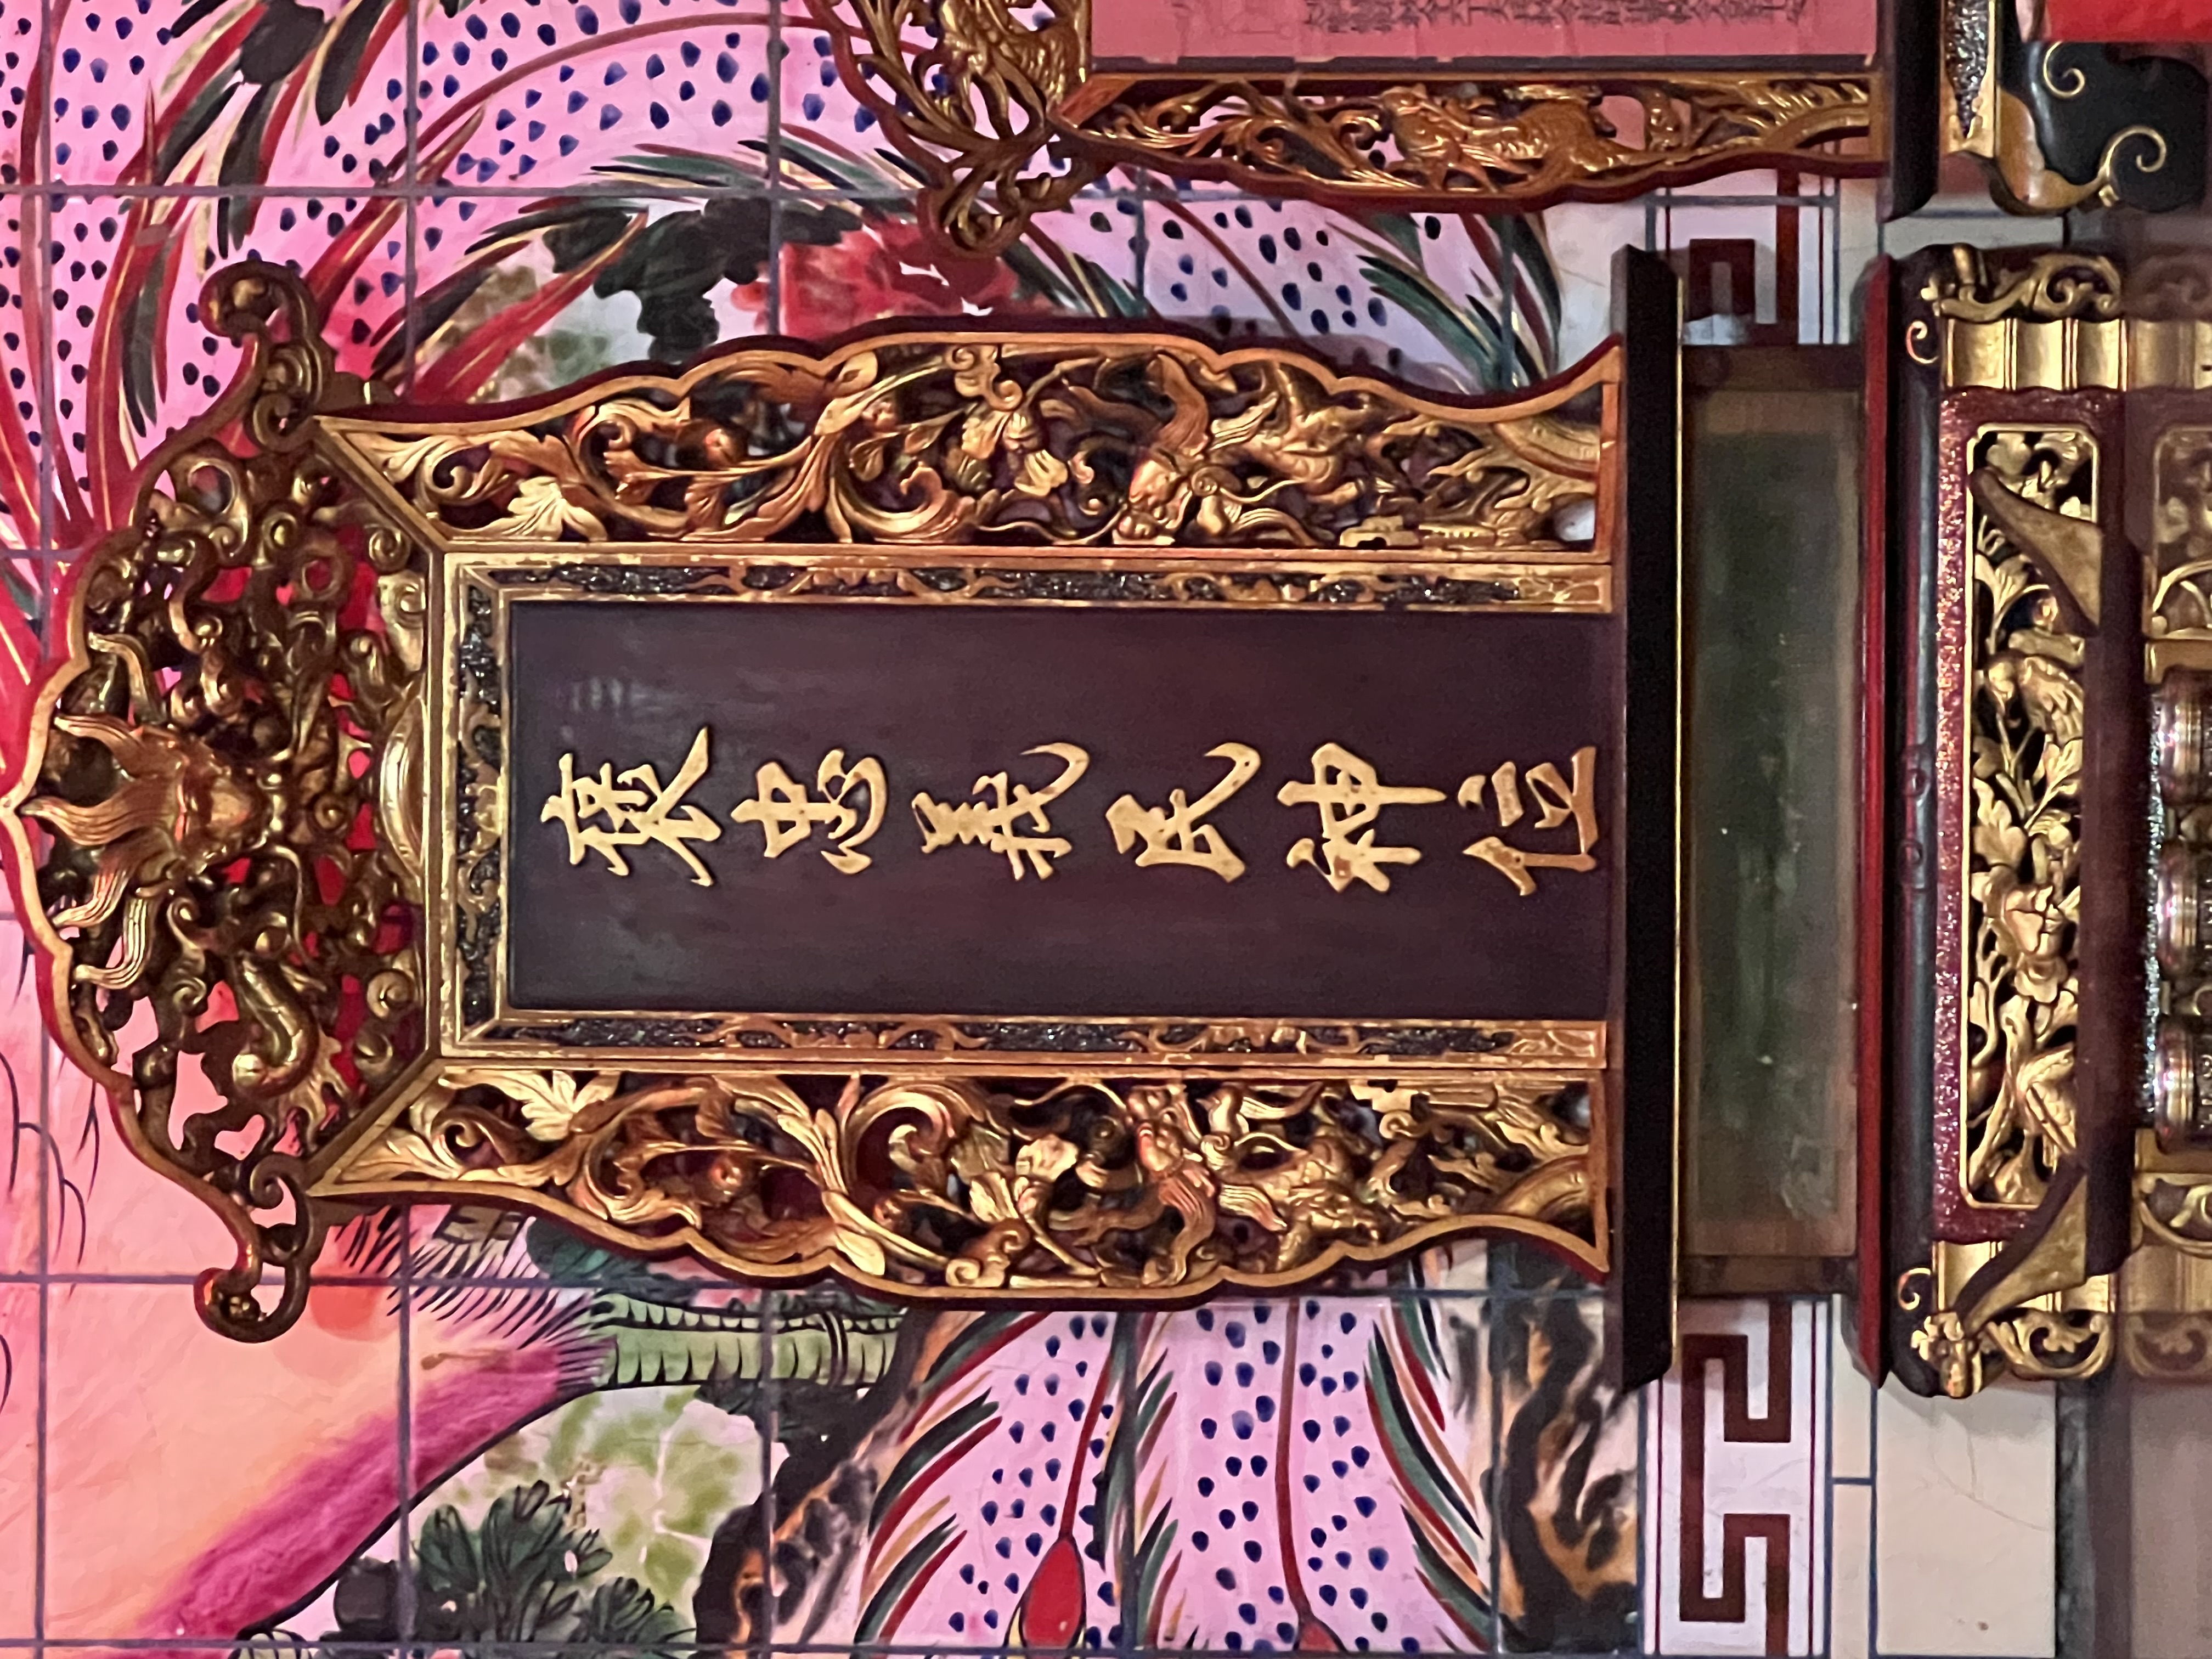 褒忠義民神位